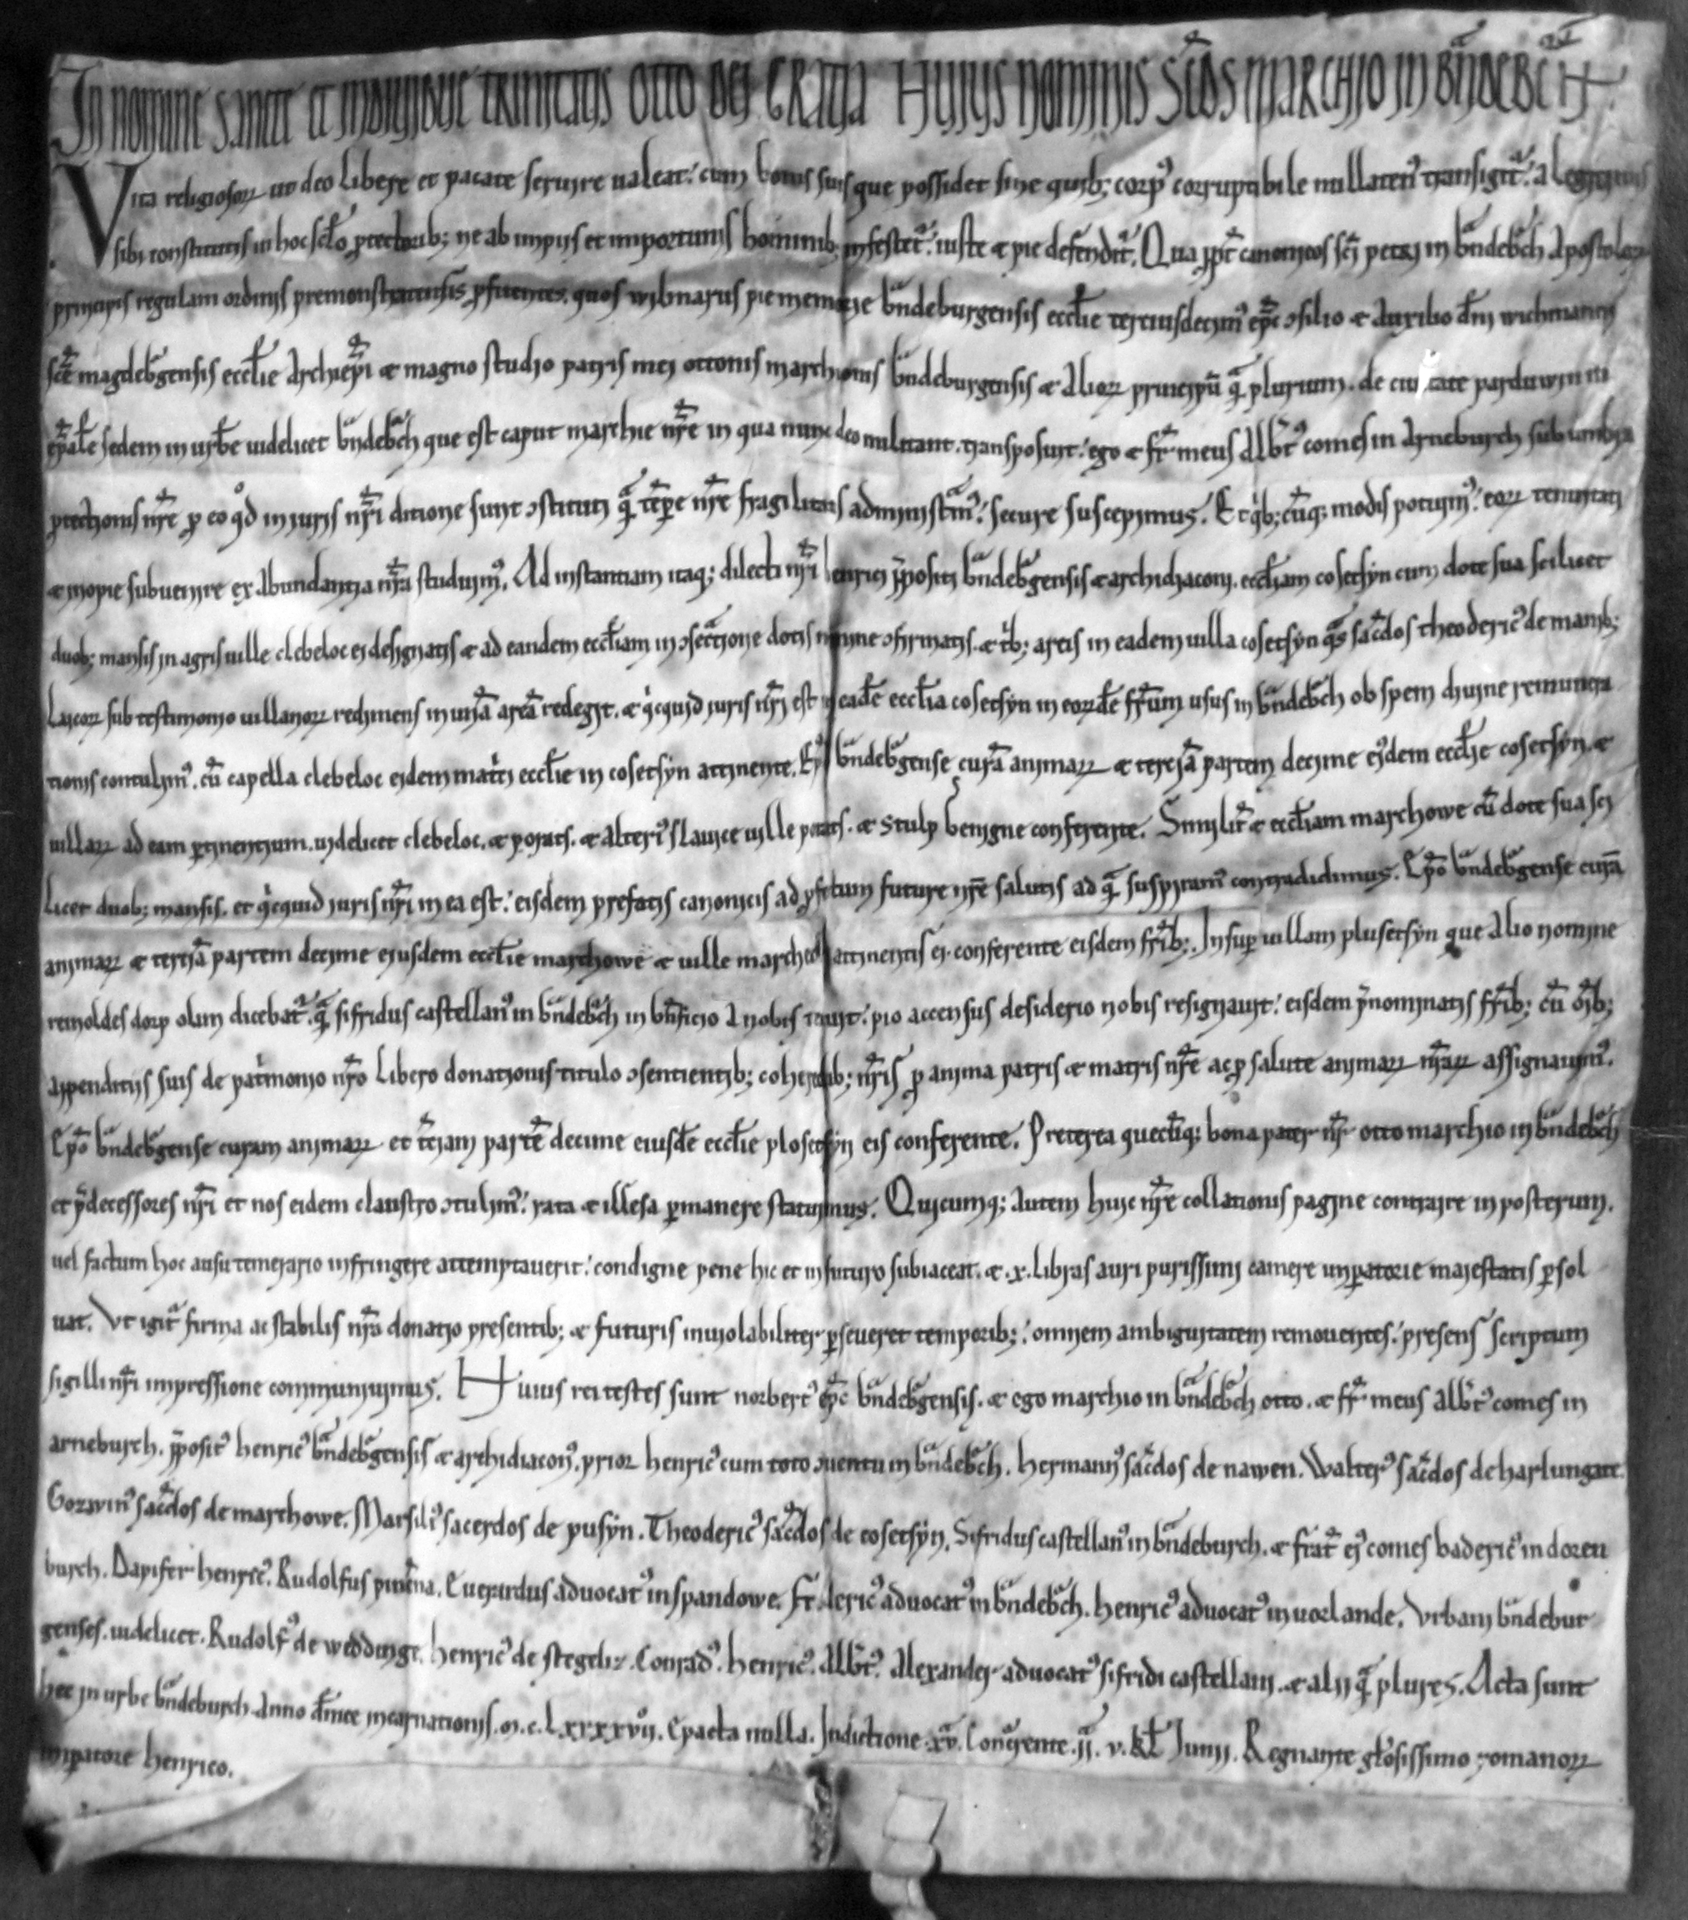 In nomine sancte et individue trinitatis Otto dei gratia Hujus nominis Scds marchio in Brandebch
Vita religiosorum ut deo libere et pacate servire valeat. cum bonis suis que possidet sine quib; corp' corruptibile nullaten' transigit. a legitimis
sibi constitutis in hoc sclo ptectorib; ne ab impiis et importunis hominib; infestet. iuste et pie defendit. Qua ppt canonicos sci petri in bndebch apostolorum
principis regulam ordinis premonstratensis pfitentes. quos wilmarus pie memorie bndeburgensis ecclie terciusdecim' epc consilio et auxilio dni wichmanni
sce magdebgensis ecclie archiepi et magno studio patris mei ottonis marchionis bndeburgensis et aliorum principu qua plurium. de civitate parduwin in
epale sedem in urbe videlicet bndebch que est caput marchie nre in qua nunc deo militant. transposuit. ego et fr meus albt' comes in arneburch sub umbra
ptectionis nre p eo qd in iuris nri ditione sunt constituti qua tepe nre fragilitatis administram'. secure suscepimus. Et qib; cuq; modis potuim'. eorum tenuitati
et inopie subvenire ex abundantia nra studuim'. Ad instantiam itaq; dilecti nri henrici ppositi bndebgensis et archidiaconi. eccliam cosetsyn cum dote sua scilicet
duob; mansis in agris ville clebeloc ei designatis et ad eandem eccliam in consecratione dotis nomine confirmatis. et trib; areis in eadem villa cosetsyn qas sacdos theoderic' de manib;
laicorum sub testimonio villanorum redimens in unam area redegit. et qicquid iuris nri est in eade ecclia cosetsyn in eorude frum usus in bndebch ob spem divine remunera
tionis contulim'. cu capella clebeloc eidem matri ecclie in cosetsyn attinente. Epo bndebgense cura animarum et tercia partem decime ejusdem ecclie cosetsyn. et
villarum ad eam ptinentium. videlicet clebeloc. et porats. et alteri' slavice ville porats. et stulp benigne conferente. Similit et eccliam marchowe cu dote sua sci
licet duob; mansis. et qicquid iuris nri in ea est. eisdem prefatis canonicis ad pfectum future nre salutis ad qua suspiram' contradidimus. Epo bndebgense cura
animarum et tercia partem decime ejusdem ecclie marchowe et ville marchowe attinentis ei. conferente eisdem frib;. Insup villam plusetsyn que alio nomine
reinoldes dorp olim dicebat. qua sifridus castellan' in bndebch in bnficio a nobis tenuit. pio accensus desiderio nobis resignavit. eisdem pnominatis frib; cu oib;
appenditiis suis de patrimonio nro libero donationis titulo consentientib; coheredib; nris p anima patris et matris nre ac p salute animarum nrarum assignavim'.
Epo bndebgense curam animarum et tciam parte decime eiusde ecclie plosetsyn eis conferente. Preterea quecuq; bona pater nr otto marchio in bndebch
et pdecessores nri et nos eidem claustro contulim'. rata et illesa pmanere statuimus. Quicumq; autem huic nre collationis pagine contraire in posterum.
vel factum hoc ausu temerario infringere attemptaverit. condigne pene hic et in futuro subiaceat. et .x. libras auri purissimi camere imperatorie majestatis psol
vat. Ut igit firma ac stabilis nra donatio presentib; et futuris inviolabiliter pseveret temporib;. omnem ambiguitatem removentes. presens scriptum
sigilli nri impressione communivimus. Huius rei testes sunt norbert' epc bndebgensis. et ego marchio in bndebch otto. et fr meus albt' comes in
arneburch. pposit' henric' bndebgensis et archidiacon'. prior henric' cum toto conventu in bndebch. hermann' sacdos de nawen. Walter' sacdos de harlungate.
Gozwin' sacdos de marchowe. Marsili' sacerdos de pusyn. Theoderic' sacdos de cosetsyn. Sifridus castellan' in bndeburch. et frat ej' comes baderic' in doren
burch. Dapifer henric'. Rudolfus pincerna. Everardus advocat' in spandowe. Frideric' advocat' in bndebch. henric' advocat' in vorlande. Urbani bndebur
genses. videlicet. Rudolf' de weddinge. henric' de stegeliz. Conrad'. henric'. Albt'. Alexander advocat' sifridi castellani. et alii qua plures. Acta sunt
hec in urbe bndeburch. Anno dnice incarnationis. M. C. Lxxxxvii. Epacta nulla. Indictione .xv. Concurrente .ii. v. kl Junii. Regnante gliosissimo romanorum
imperatore henrico.